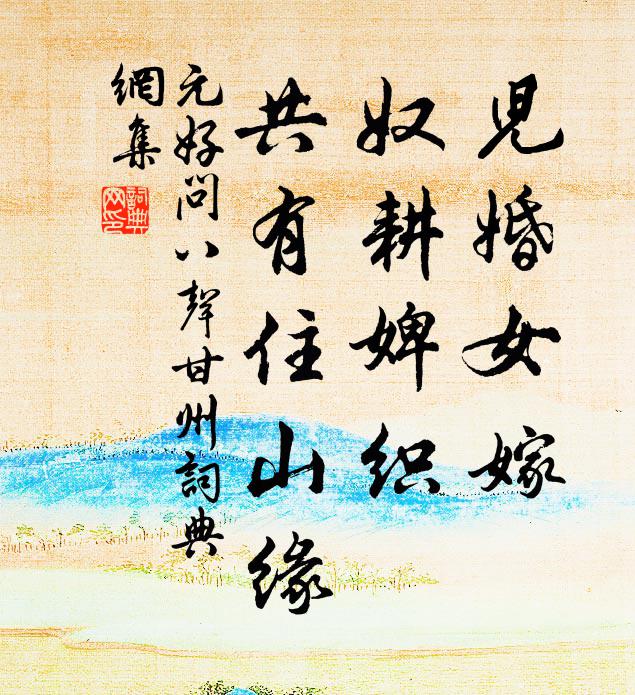 児婚女嫁
奴耕婢织
共有住山缘
元好问八聲甘州詞典
網集
詞典
网印